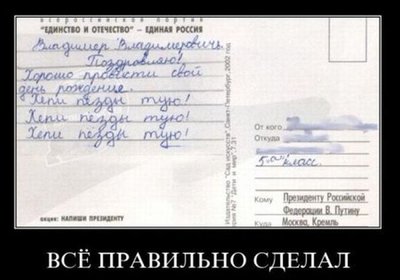 всероссийской партии
"ЕДИНСТВО И ОТЕЧЕСТВО" – ЕДИНАЯ РОССИЯ
Владимер Владимерович.
Поздровляю!
Хорошо провести свой
день рождение.
Хепи пезды тую!
Хепи пезды тую!
Хепи пезды тую!
акция: НАПИШИ ПРЕЗИДЕНТУ
Издательство "Сад искусств", Санкт-Петербург, 2002 год
Серия №7 "Дети и мир", 7.31
От кого
Откуда
5 "а" класс.
Кому Президенту Российской
Федерации В. Путину
Куда Москва, Кремль
ВСЁ ПРАВИЛЬНО СДЕЛАЛ